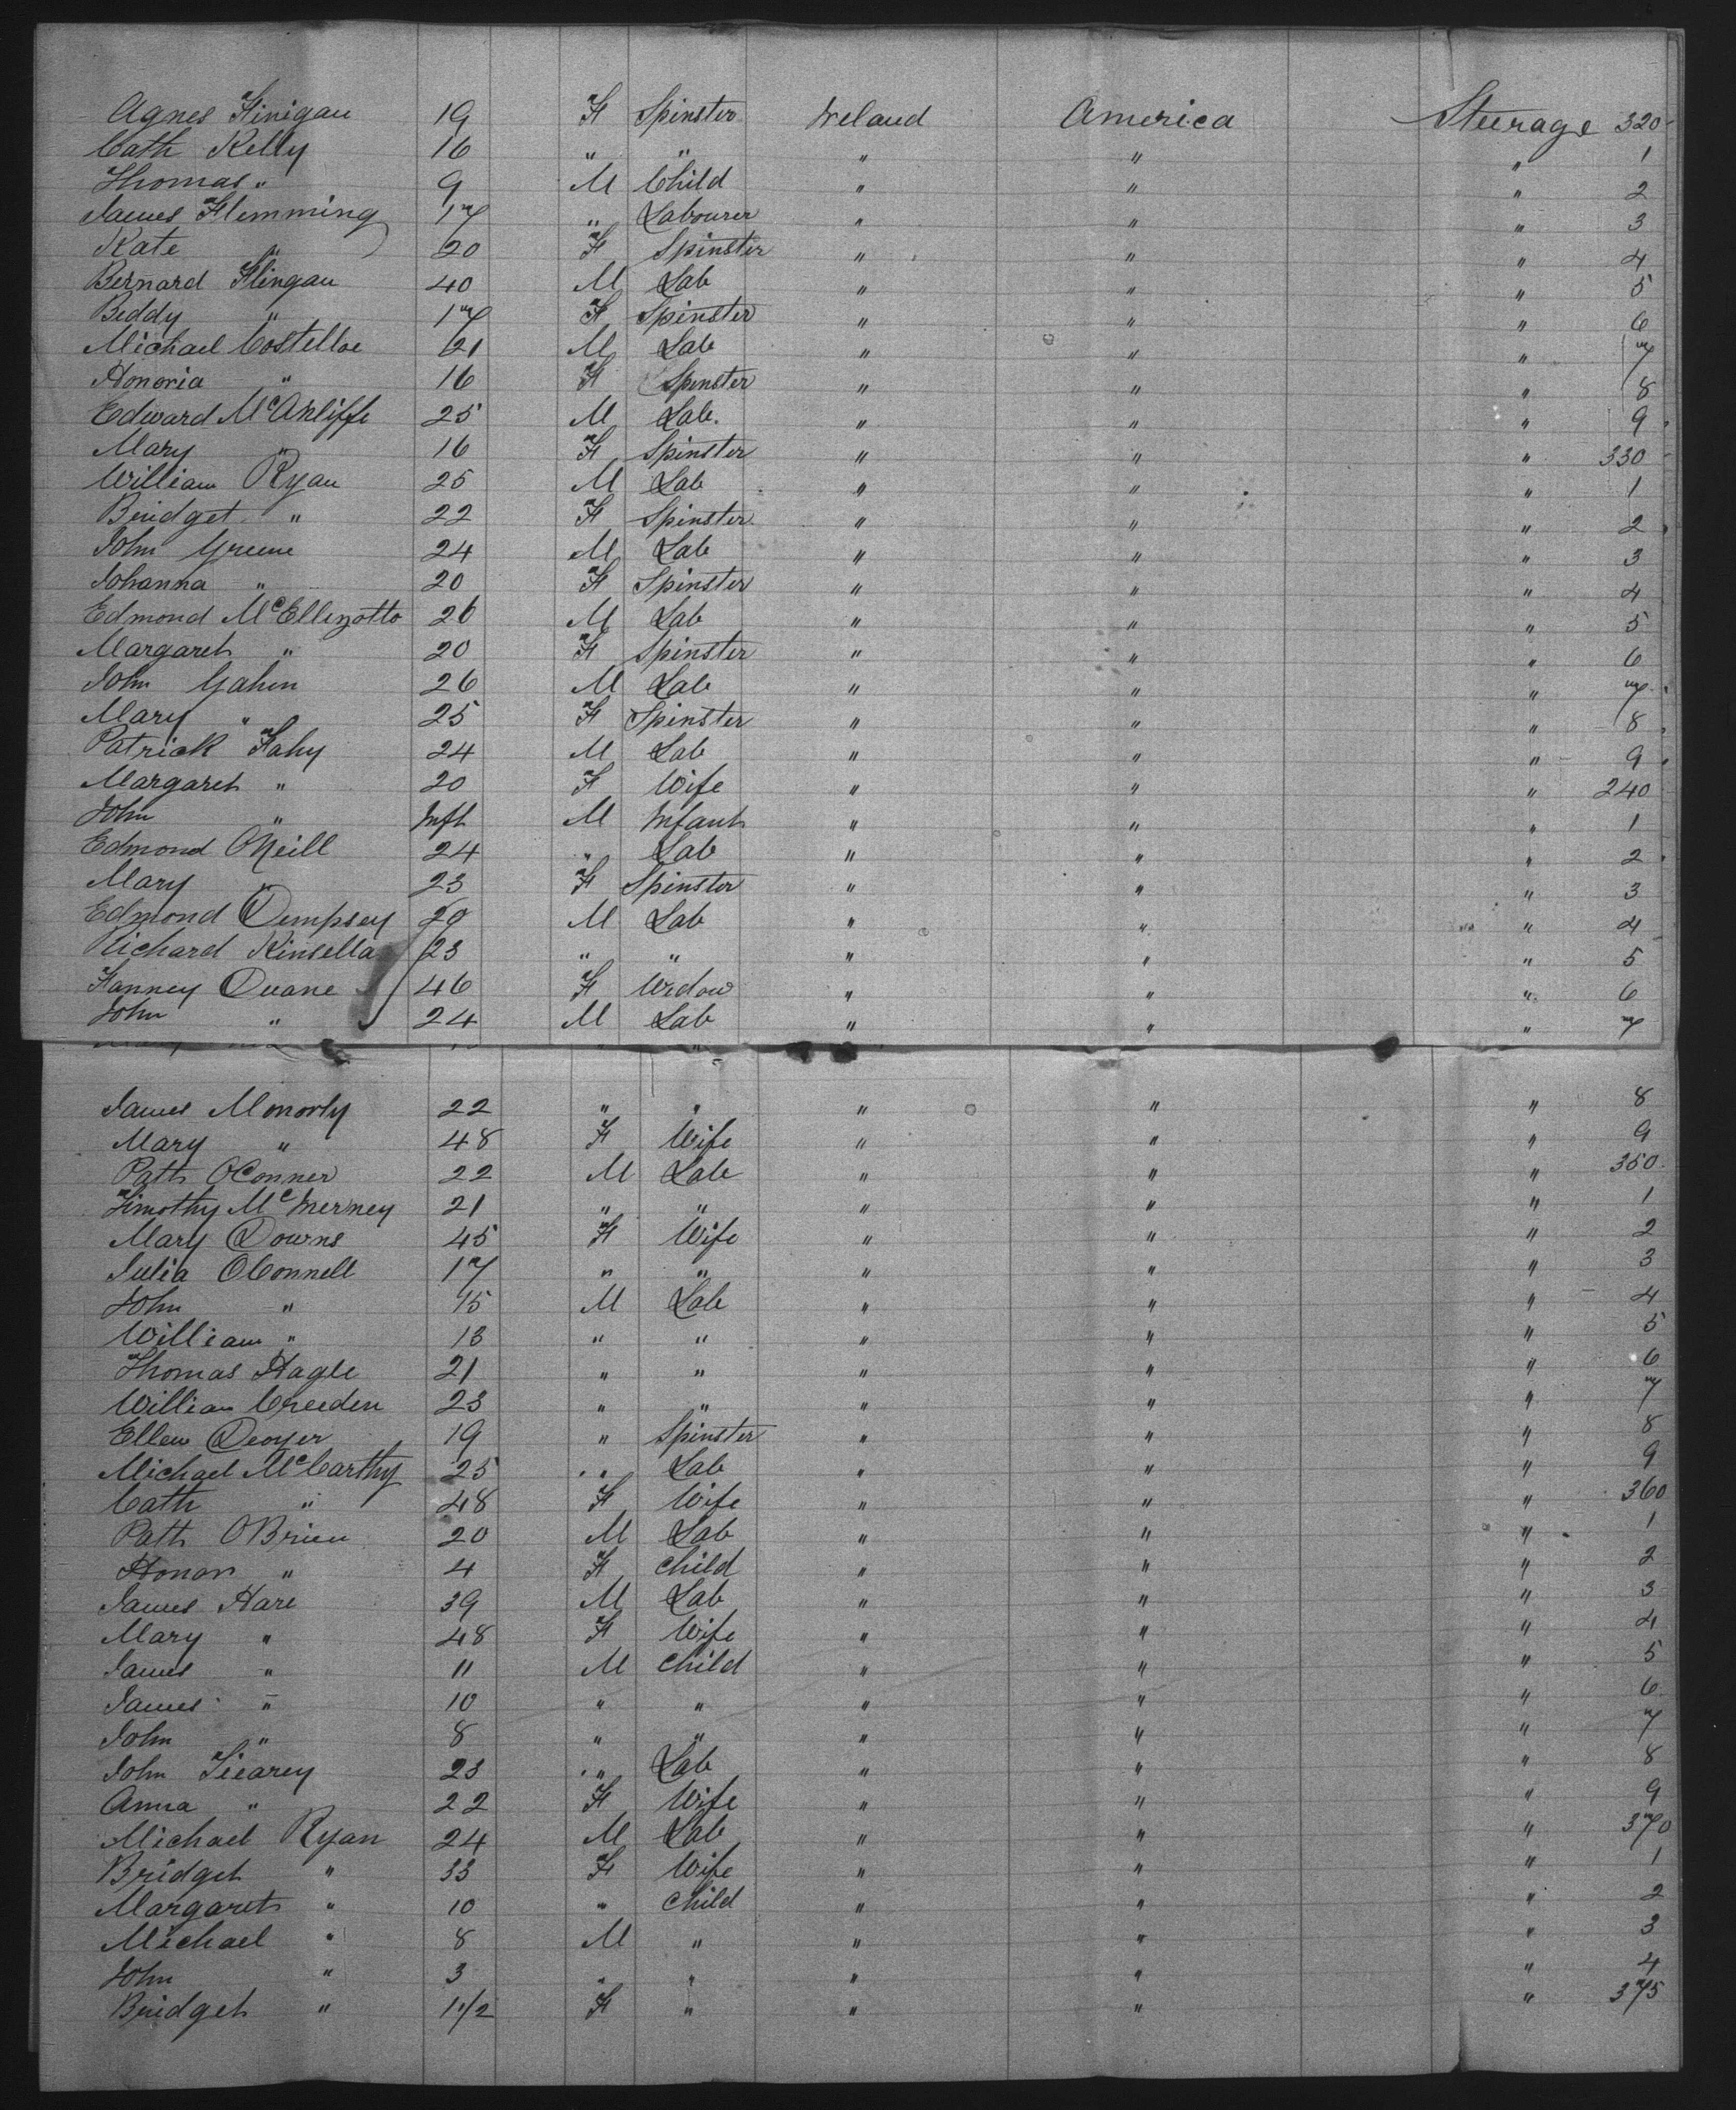 Agnes Finigan 19 F Spinster Ireland America Steerage 320
Cath Kelly 16 " " " " " 1
Thomas " 9 M Child " " " 2
James Flemming 17 " Labourer " " " 3
Kate " 20 F Spinster " " " 4
Bernard Flingan 40 M Lab " " " 5
Beddy " 17 F Spinster " " " 6
Michael Costelloe 21 M Lab " " " 7
Honoria " 16 F Spinster " " " 8
Edward McAuliffe 25 M Lab. " " " 9
Mary " 16 F Spinster " " " 330
William Ryan 25 M Lab " " " 1
Bridget " 22 F Spinster " " " 2
John Greene 24 M Lab " " " 3
Johanna " 20 F Spinster " " " 4
Edmond McElligotto 26 M Lab " " " 5
Margaret " 20 F Spinster " " " 6
John Gahen 26 M Lab " " " 7
Mary " 25 F Spinster " " " 8
Patrick Fahy 24 M Lab " " " 9
Margaret " 20 F Wife " " " 240
John " Inft M Infant " " " 1
Edmond ONeill 24 " Lab " " " 2
Mary " 23 F Spinster " " " 3
Edmond Dempsey 20 M Lab " " " 4
Richard Kinsella 23 " " " " " 5
Fanney Duane 46 F Widow " " " 6
John " 24 M Lab " " " 7
James Monorly 22 " " " " " 8
Mary " 48 F Wife " " " 9
Patk OConner 22 M Lab " " " 350
Timothy McInerney 21 " " " " " 1
Mary Downs 45 F Wife " " " 2
Julia OConnell 17 " " " " " 3
John " 15 M Lab " " " 4
William " 13 " " " " " 5
Thomas Hagle 21 " " " " " 6
William Creeden 23 " " " " " 7
Ellen Dwyer 19 " Spinster " " " 8
Michael McCarthy 25 " Lab " " " 9
Cath " 48 F Wife " " " 360
Patk OBrien 20 M Lab " " " 1
Honor " 4 F child " " " 2
James Hare 39 M Lab " " " 3
Mary " 48 F Wife " " " 4
James " 11 M child " " " 5
James " 10 " " " " " 6
John " 8 " " " " " 7
John 23 " Lab " " " 8
Anna " 22 F Wife " " " 9
Michael Ryan 24 M Lab " " " 370
Bridget " 33 F Wife " " " 1
Margaret " 10 " child " " " 2
Michael " 8 M " " " " 3
John " 3 " " " " " 4
Bridget " 1 1/2 F " " " " 375